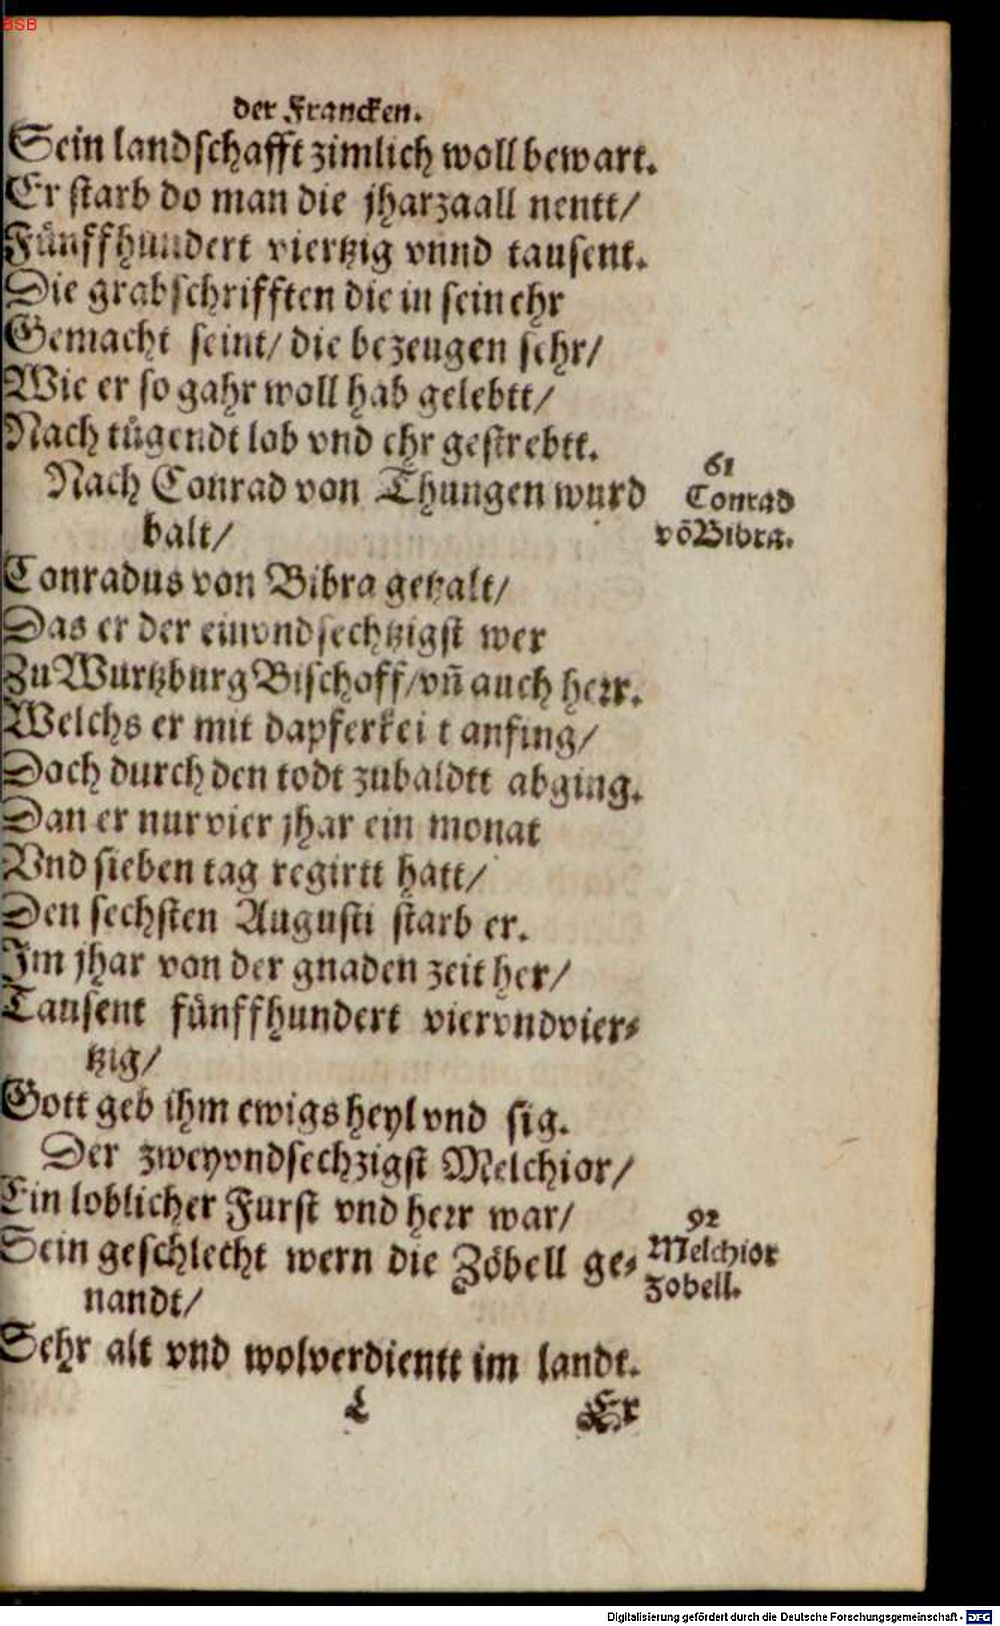 BSB
der Francken.
Sein landschafft zimlich woll bewart.
Er starb do man die jharzaall nentt/
Fünffhundert viertzig vnnd tausent.
Die grabschrifften die in sein ehr
Gemacht seint/ die bezeugen sehr/
Wie er so gahr woll hab gelebtt/
Nach tügendt lob vnd ehr gestrebtt.
Nach Conrad von Thungen wurd
balt/
61
Conrad
võ Bibra.
Conradus von Bibra getzalt/
Das er der einvndsechtzigst wer
Zu Wurtzburg Bischoff/ vñ auch herr.
Welchs er mit dapferkei t anfing/
Doch durch den todt zubaldtt abging.
Dan er nur vier jhar ein monat
Vnd sieben tag regirtt hatt/
Den sechsten Augusti starb er.
Im jhar von der gnaden zeit her/
Tausent fünffhundert viervndvier-
tzig/
Gott geb ihm ewigs heyl vnd sig.
Der zweyvndsechzigst Melchior/
Ein loblicher Furst vnd herr war/
Sein geschlecht wern die Zöbell ge-
nandt/
92
Melchior
Zobell.
Sehr alt vnd wolverdientt im landt.
L Er
Digitalisierung gefördert durch die Deutsche Forschungsgemeinschaft - DFG